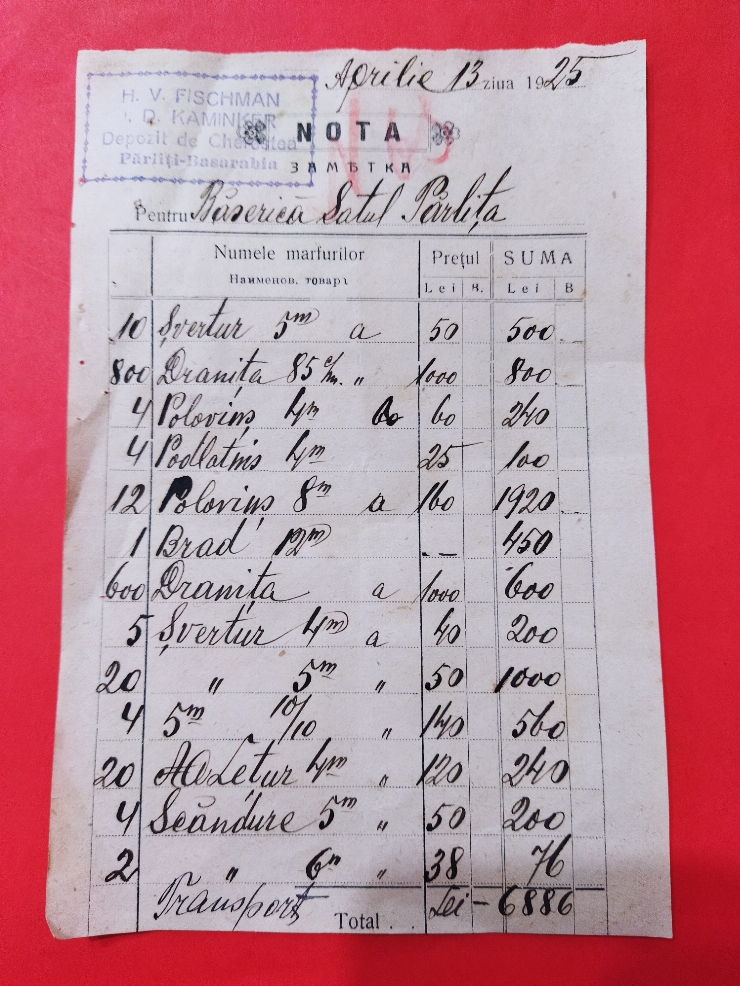 Aprilie 13 ziua 1925
H. V. FISCHMAN
D. KAMINKER
Depozit de Cherestea
Pârliți-Basarabia
NOTA
ЗАМѢТКА
Pentru Băserică Satul Pârlița
Numele marfurilor Prețul SUMA
Наименов. товаръ Lei B. Lei B
10 Șvertur 5m a 50 500
800 Dranița 85 c/m. " 1000 800
4 Polovinș 4m 60 240
4 Podlatnis 4m 25 100
12 Polovinș 8m a 160 1920
1 Brad 12m — 450
600 Dranița a 1000 600
5 Șvertur 4m a 40 200
20 " 5m " 50 1000
4 5m 10/10 " 140 560
20 4m " 120 240
4 Scândure 5m " 50 200
2 " 6m " 38 76
Transport Total . . Lei - 6886